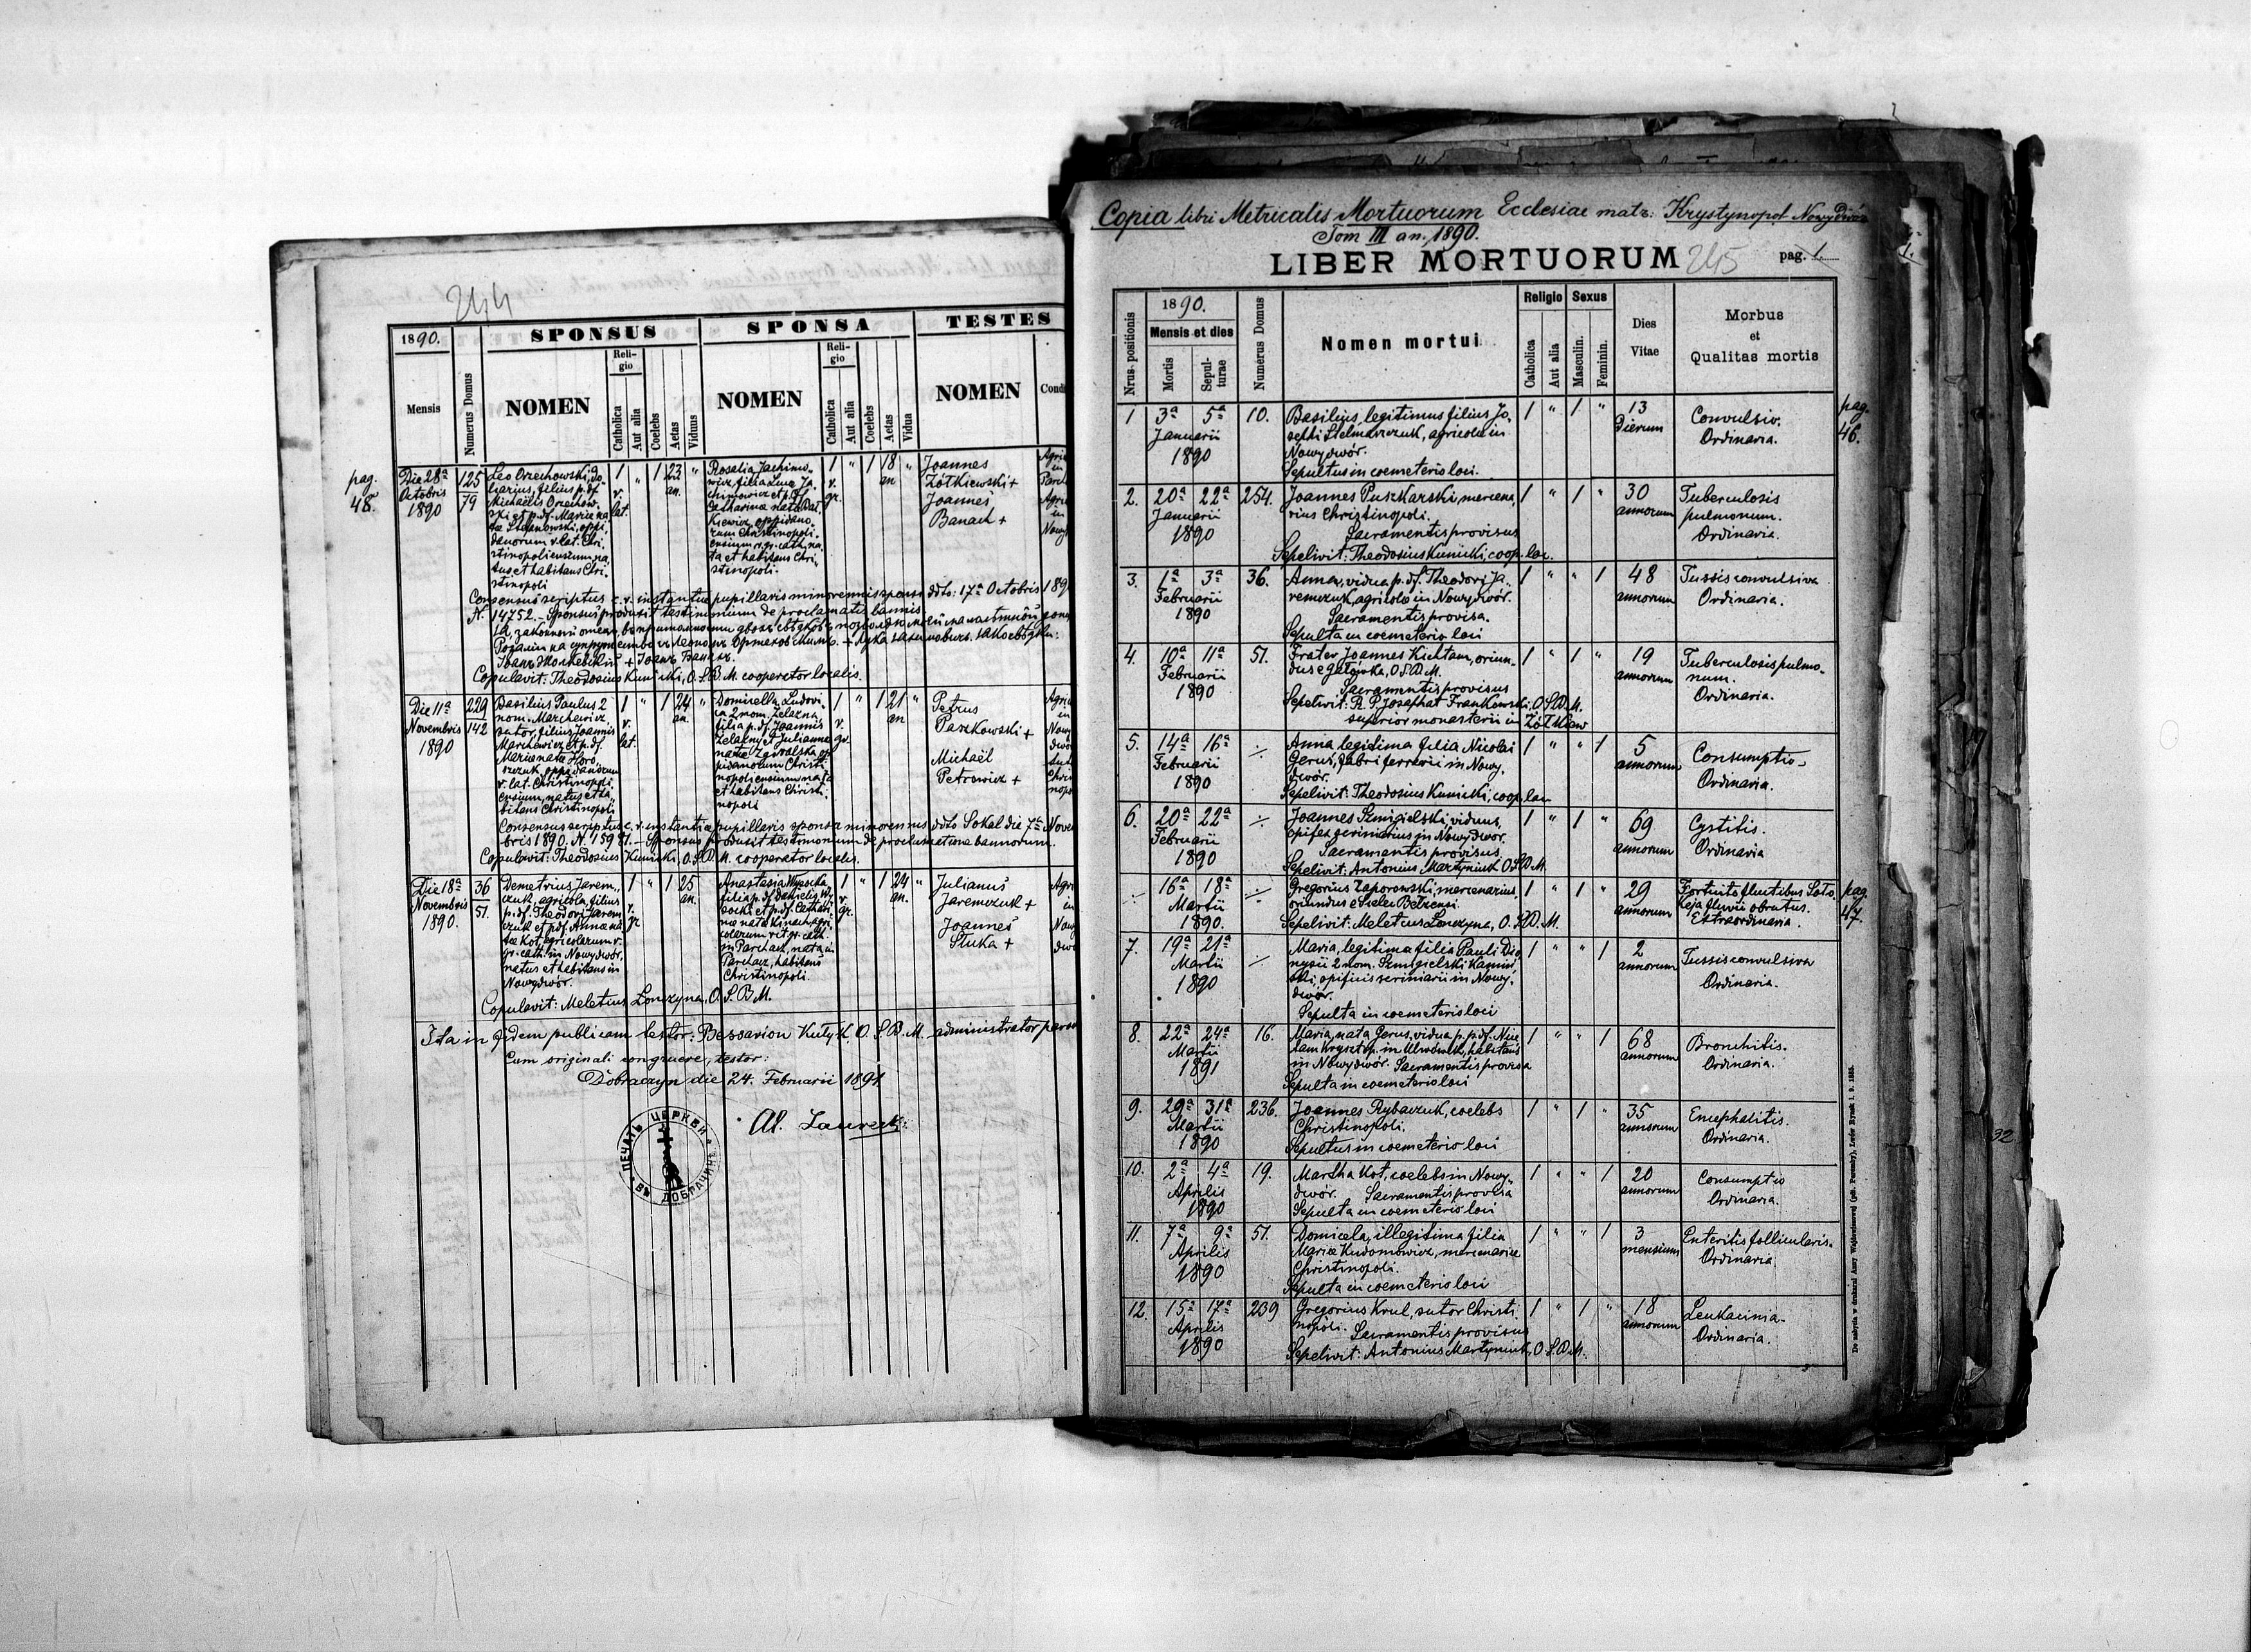 244
1890.
SPONSUS
SPONSA
TESTES
Mensis
Numerus Domus
NOMEN
Reli-
gio
Catholica
Aut alia
Coelebs
Aetas
Viduus
NOMEN
Reli-
gio
Catholica
Aut alia
Coelebs
Aetas
Vidua
NOMEN
pag.
48.
Die 28ª
Octobris
1890
125
79
Leo Orzechowski, do-
liarius, filius p. df.
Michaelis Orzechow-
ski et p. df. Mariae na-
tae Stefanowski, oppi-
danorum r. lat. Chri-
stinopoliensium, na-
tus et habitans Chri-
stinopoli
1 " 1 23 "
r.
lat.
an.
Rosalia Jachimo-
wicz, filia Lucae Ja-
chimowicz et p. df.
Catharinae natae
kiewicz, oppidano-
rum Christinopoli-
ensium r. gr. cath. na-
ta et habitans Chri-
stinopoli.
1 " 1 18 "
r.
gr.
an
Joannes
Żółkiewski +
Joannes
Banach +
Consensus scriptus c. r. instantiae pupillaris minorennis sponsi ddto: 17ª Octobris 189
N. 14752. – Sponsus produxit testimonium de proclamatis bannis.
Copulavit: Theodosius Kunicki, O. S. B. M. cooperator localis.
Die 11ª
Novembris
1890
229
142
Basilius Paulus 2
nom. Marchewicz,
sutor, filius Joannis
Marchewicz et p. df.
Mariae natae Horo-
szczuk, oppidanorum
r. lat. Christinopoli-
ensium, natus et ha-
bitans Christinopoli
1 " 1 24 "
r.
lat.
an.
Domicella Ludovi-
ca 2 nom. Żelazna,
filia p. df. Joannis
Żelazny et Julianna
natae Zawalska op-
pidanorum Christi-
nopoliensium nata
et habitans Christi-
nopoli
1 " 1 21 "
r.
gr.
an
Petrus
Paszkowski +
Michaël
Petrowicz +
Consensus scriptus c. r. instantiae pupillaris sponsae minorennis ddto Sokal die 7ª Novem
bris 1890. N. 15981. – Sponsus produxit testimonium de proclamatione bannorum.
Copulavit: Theodosius Kunicki, O. S. B. M. cooperator localis.
Die 18ª
Novembris
1890.
36
51.
Demetrius Jarem-
czuk, agricola, filius
p. df. Theodori Jarem-
czuk et p. df. Annae na-
tae Kot, agricolarum r.
gr. cath. in Nowydwór,
natus et habitans in
Nowydwór.
1 " 1 25
r.
gr
an.
Anastasia Wysocka
filia p. df. Danielis Wy-
socki et p. df. Cathari-
nae natae
colarum rit. gr. cath.
in Parchacz, nata in
Parchacz, habitans
Christinopoli.
1 " 1 24 "
r.
gr.
an.
Julianus
Jaremczuk +
Joannes
Stuka +
Copulavit: Meletius Lonczyna, O. S. B. M.
Ita in fidem publicam testor: Bessarion Kułyk, O. S. B. M. administrator paroc
Cum originali congruere, testor:
Dobraczyn die 24. Februarii 1891.
Al. Laurecki
ПЕЧАТЬ ЦЕРКВИ
ВЪ ДОБРАЧИНѢ
Copia libri Metricalis Mortuorum Ecclesiae matr: Krystynopol Nowydwór
Tom III an. 1890.
LIBER MORTUORUM 245 pag. 1.
Nrus positionis
1890.
Mensis et dies
Mortis
Sepul-
turae
Numerus Domus
Nomen mortui
Religio
Catholica
Aut alia
Sexus
Masculin.
Feminin.
Dies
Vitae
Morbus
et
Qualitas mortis
1 3ª 5ª
Januarii
1890
10.
Basilius, legitimus filius Jo-
sephi Stelmaszczuk, agricolae in
Nowydwór.
Sepultus in coemeterio loci.
1 " 1 "
13
Dierum
Convulsio.
Ordinaria.
pag.
46.
2. 20ª 22ª
Januarii
1890
254.
Joannes Puszkarski, mercena-
rius Christinopoli.
Sacramentis provisus
Sepelivit: Theodosius Kunicki, coop. loc.
1 " 1 "
30
annorum
Tuberculosis
pulmonum.
Ordinaria.
3. 1ª 3ª
Februarii
1890
36.
Anna, vidua p. df. Theodori Ja-
remczuk, agricolae in Nowydwór.
Sacramentis provisa.
Sepulta in coemeterio loci
1 " " 1
48
annorum
Tussis convulsiva
Ordinaria.
4. 10ª 11ª
Februarii
1890
51.
Frater Joannes Kichtam, oriun-
dus e Gołówka, O. S. B. M.
Sacramentis provisus
Sepelivit: R. P. Josaphat Frankowski, O. S. B. M.
superior monasterii in Żółkiew
1 " 1 "
19
annorum
Tuberculosis pulmo-
num.
Ordinaria.
5. 14ª 16ª
Februarii
1890
÷
Anna legitima filia Nicolai
Gerus, fabri ferrarii in Nowy-
dwór.
Sepelivit: Theodosius Kunicki, coop. loci
1 " " 1
5
annorum
Consumptio
Ordinaria.
6. 20ª 22ª
Februarii
1890
÷
Joannes Szmigielski, viduus,
opifex scriniarius in Nowydwór.
Sacramentis provisus
Sepelivit: Antonius Martyniuk O. S. B. M.
1 " 1 "
69
annorum
Cystitis.
Ordinaria
÷ 16ª 18ª
Martii
1890.
÷
Gregorius Zaporowski, mercenarius,
oriundus e Sielec Bełzensi.
Sepelivit: Meletius Lonczyna, O. S. B. M.
1 " 1 "
29
annorum
Fortuito fluctibus Soło-
kija fluvii obrutus.
Extraordinaria.
pag.
47.
7. 19ª 21ª
Martii
1890
÷
Maria, legitima filia Pauli Dio-
nysii 2 nom. Szmigielski Kamin-
ski, opificis scriniarii in Nowy-
dwór.
Sepulta in coemeterio loci
1 " " 1
2
annorum
Tussis convulsiva
Ordinaria.
8. 22ª 24ª
Martii
1891
16.
Maria, nata Gerus, vidua p. p. df. Nice-
tam Kryszt op. in Ulwówek, habitans
in Nowydwór. Sacramentis provisa
Sepulta in coemeterio loci
1 " " 1
68
annorum
Bronchitis.
Ordinaria.
9. 29ª 31ª
Martii
1890
236.
Joannes Rybaczuk, coelebs
Christinopoli.
Sepultus in coemeterio loci
1 " 1 "
35
annorum
Encephalitis.
Ordinaria.
10. 2ª 4ª
Aprilis
1890
19.
Martha Kot, coelebs in Nowy-
dwór. Sacramentis provisa
Sepulta in coemeterio loci
1 " " 1
20
annorum
Consumptio
Ordinaria.
11. 7ª 9ª
Aprilis
1890
51.
Domicela, illegitima filia
Mariae Kudomowicz, mercenariae
Christinopoli.
Sepulta in coemeterio loci
1 " " 1
3
mensium
Enteritis follicularis.
Ordinaria
12. 15ª 17ª
Aprilis
1890
239
Gregorius Krul, sutor Christi-
nopoli. Sacramentis provisus
Sepelivit: Antonius Martyniuk, O. S. B. M.
1 " 1 "
18
annorum
Leukaemia.
Ordinaria.
32